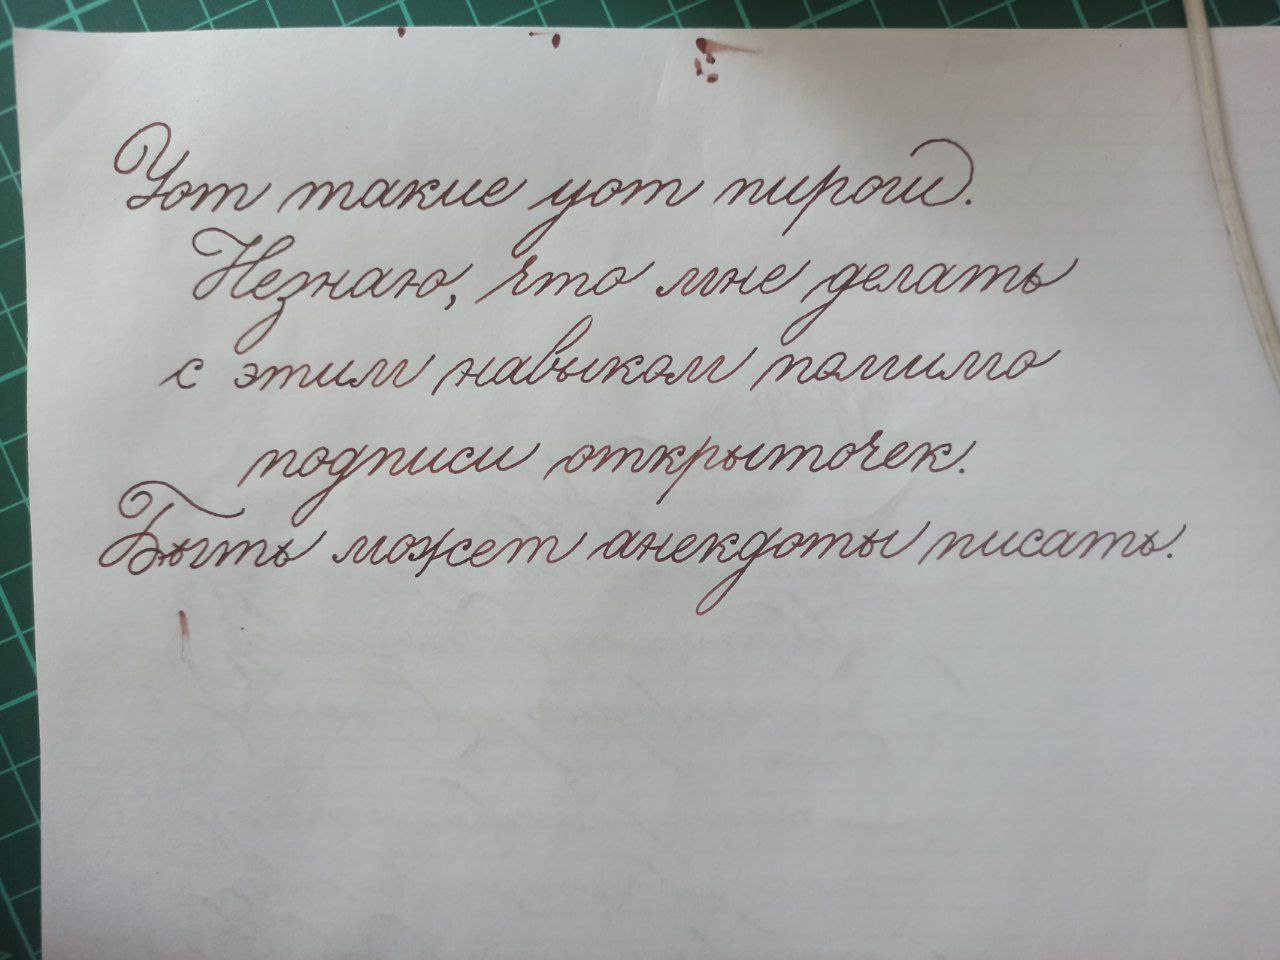 Уот такие уот пироги.
Незнаю, что мне делать
с этим навыком помимо
подписи открыточек.
Быть может анекдоты писать.